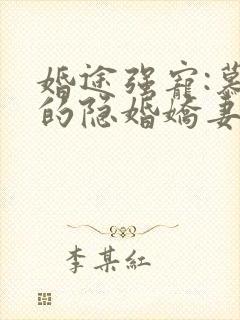 婚途强寵:慕
的隐婚嬌妻
李某紅